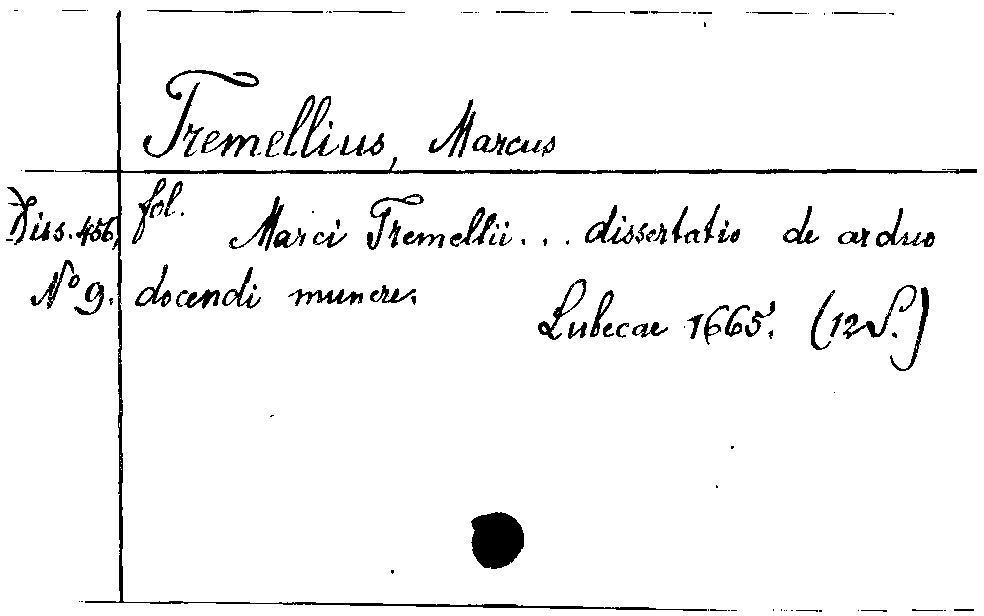 Tremellius, Marcus
Diss. 456, fol.
Marci Tremellii... dissertatio de arduo
No 9. docendi munere.
Lubecae 1665. (12 S.)